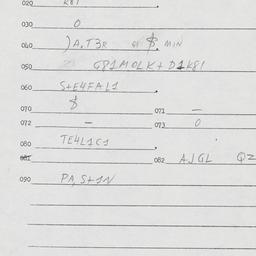 020 K81.
030 O
040 )A.T3R $ MIN
050 G81MOLK+D1K81
060 S+E4FAL1.
070 $ 071 —
072 — 073 O
080 TE4L1C1.
081 082 AJGL QZ
090 PA,S+1N